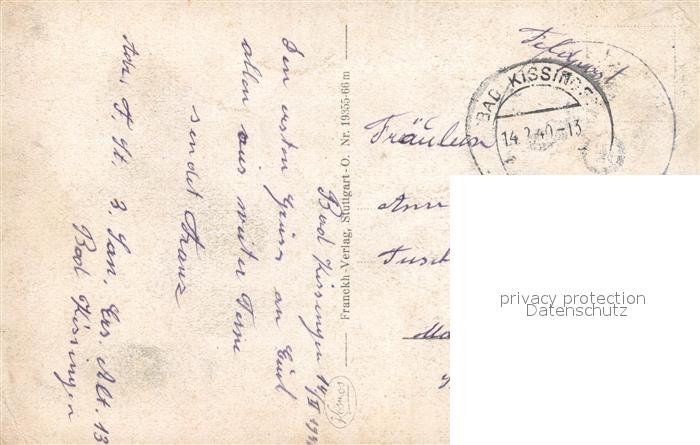 Feldpost
BAD KISSINGEN
14.2.40-13
Fräulein
Ann
Tusch
Ma
privacy protection
Datenschutz
Franckh-Verlag, Stuttgart-O. Nr. 19355-66 m
Kosmos
Bad Kissingen 14/II
Den ersten Gruss an Euch
allen aus weiter Ferne
sendet Franz
Adr. F. St. 3. San. Ers. Abt. 13
Bad Kissingen